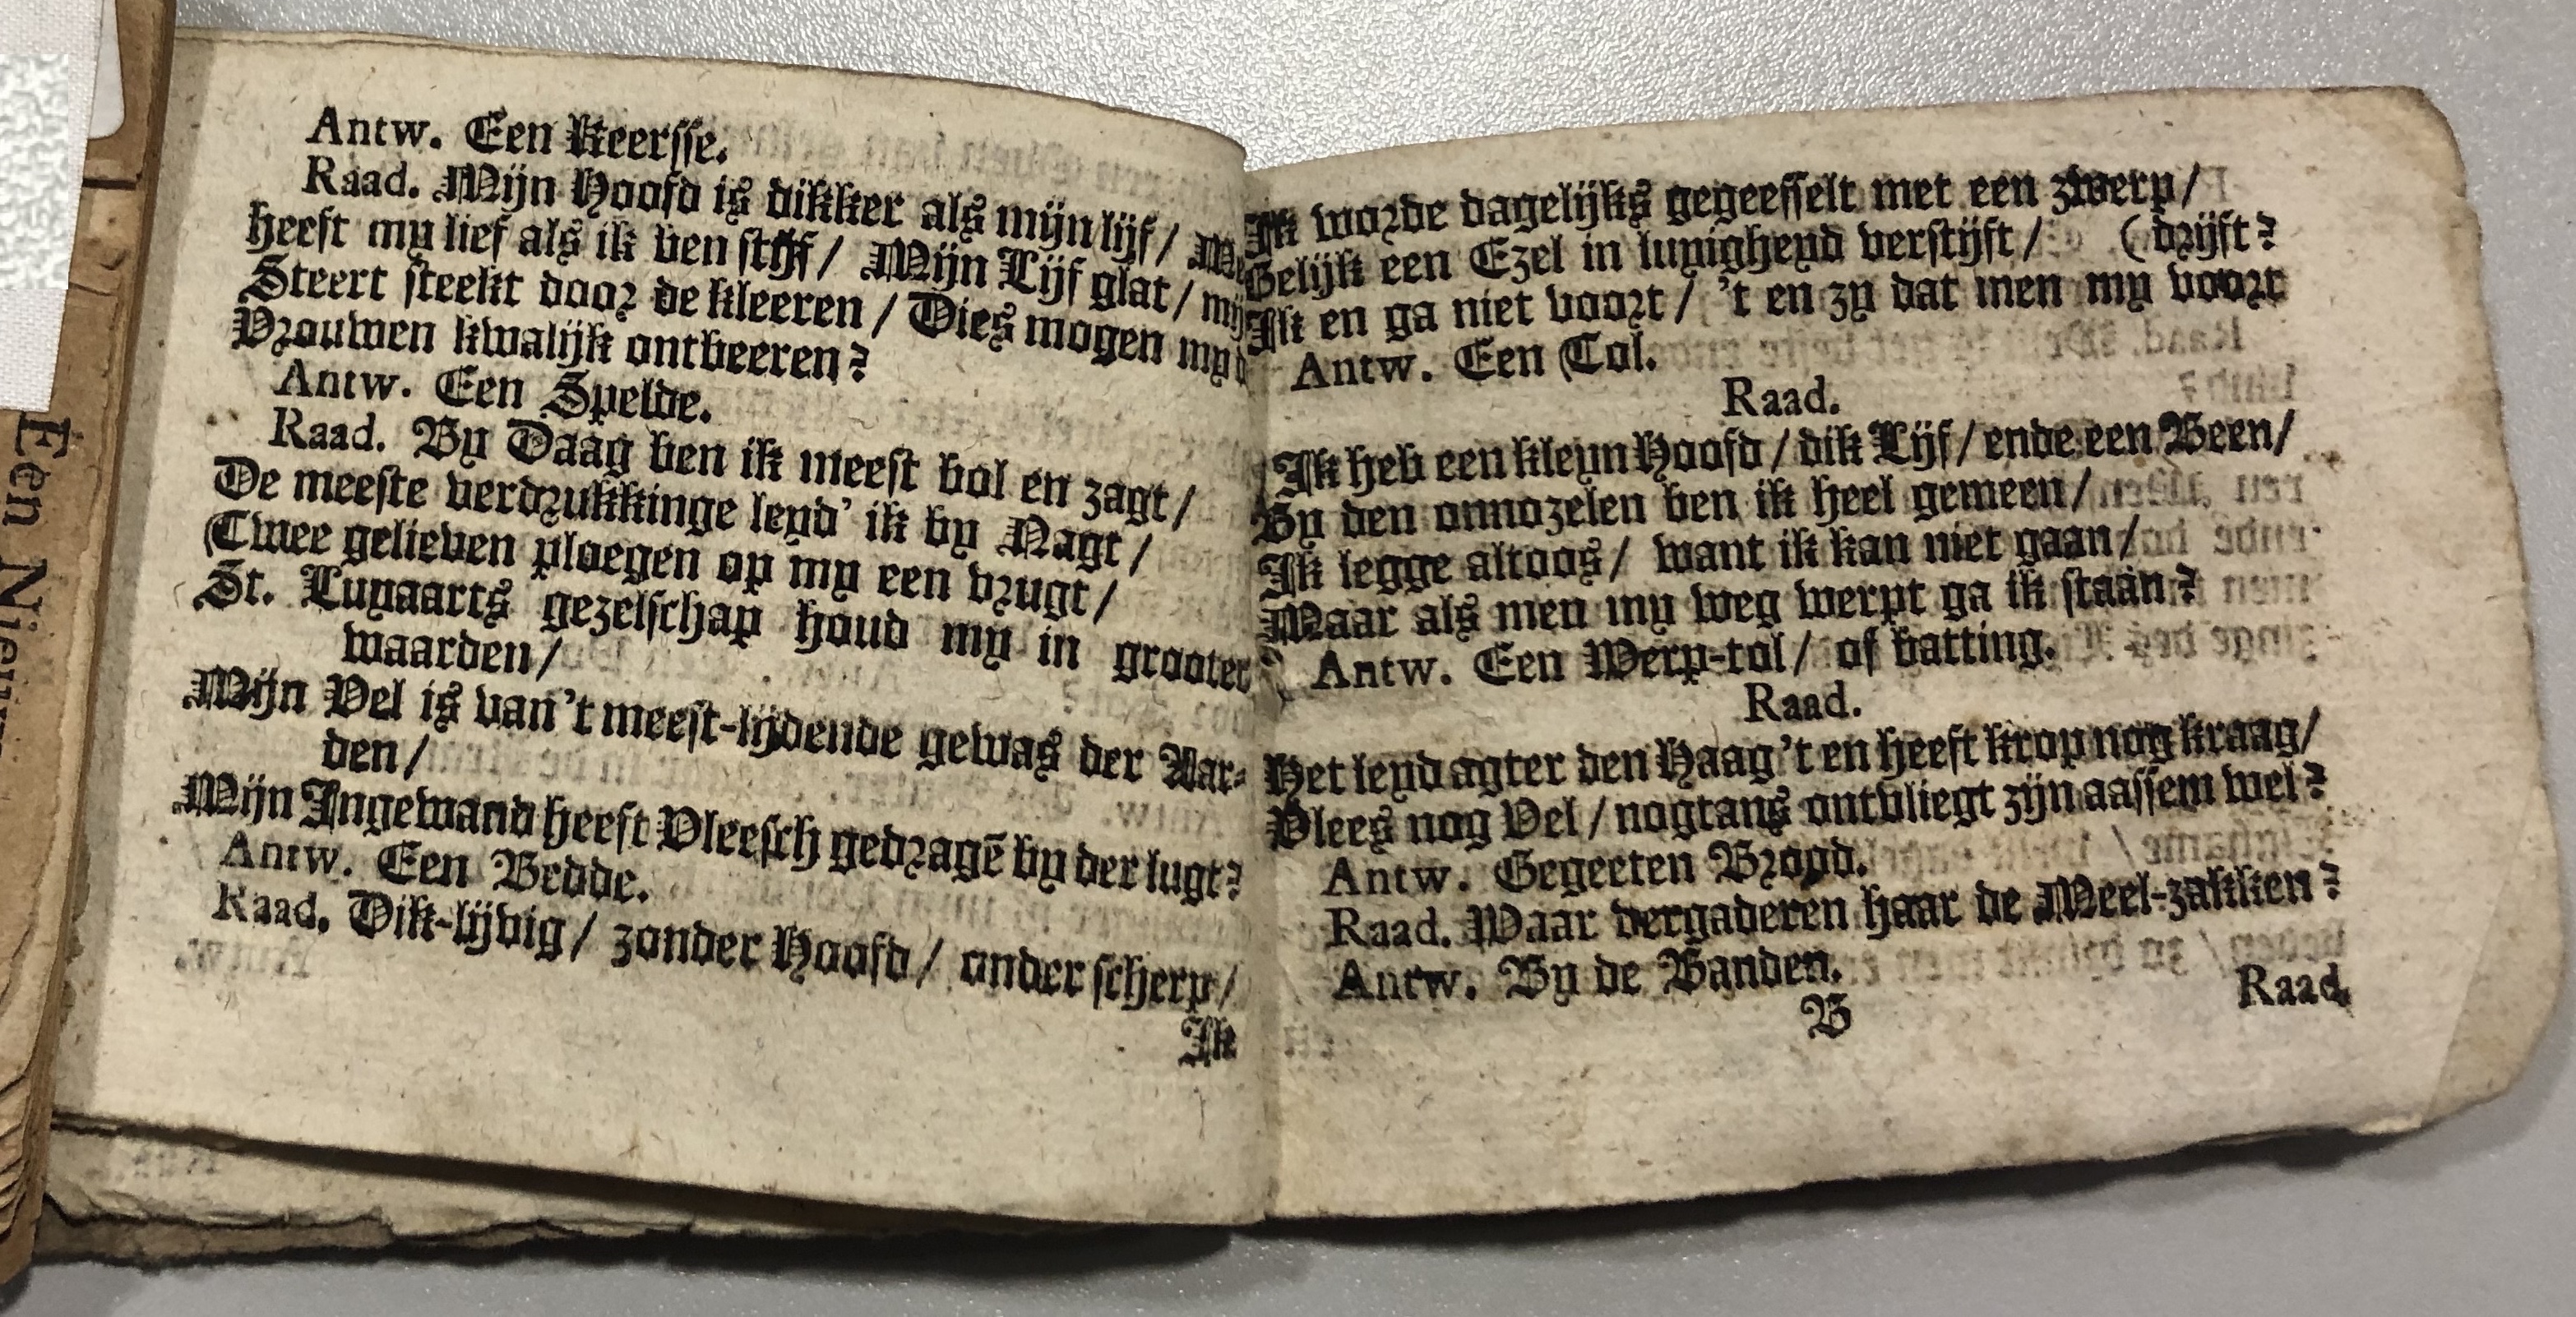 Een Nieuw
Antw. Een Keersse.
Raad. Mijn Hoofd is dikker als mijn lijf / Me
heeft my lief als ik ben stijf / Mijn Lijf glat / mij
Steert steekt door de kleeren / Dies mogen my d
Vrouwen kwalijk ontbeeren?
Antw. Een Spelde.
Raad. By Daag ben ik meest bol en zagt /
De meeste verdrukkinge leyd' ik by Nagt /
Twee gelieven ploegen op my een vrugt /
St. Luyaarts gezelschap houd my in grooter
waarden /
Mijn Vel is van 't meest-lijdende gewas der Aar-
den /
Mijn Ingewand heeft Vleesch gedragē by der lugt?
Antw. Een Bedde.
Raad. Dik-lijvig / zonder Hoofd / onder scherp /
Ik
Ik worde dagelijks gegeesselt met een zwerp /
Gelijk een Ezel in luyigheyd verstijft / ( drijft?
Ik en ga niet voort / 't en zy dat men my voort
Antw. Een Tol.
Raad.
Ik heb een kleyn Hoofd / dik Lijf / ende een Been /
By den onnozelen ben ik heel gemeen /
Ik legge altoos / want ik kan niet gaan /
Maar als men my weg werpt ga ik staan?
Antw. Een Werp-tol / of batting.
Raad.
Het leyd agter den Haag 't en heeft krop nog kraag /
Vlees nog Vel / nogtans ontvliegt zijn aassem wel?
Antw. Gegeeten Brood.
Raad. Waar vergaderen haar de Meel-zakken?
Antw. By de Banden.
B
Raad.